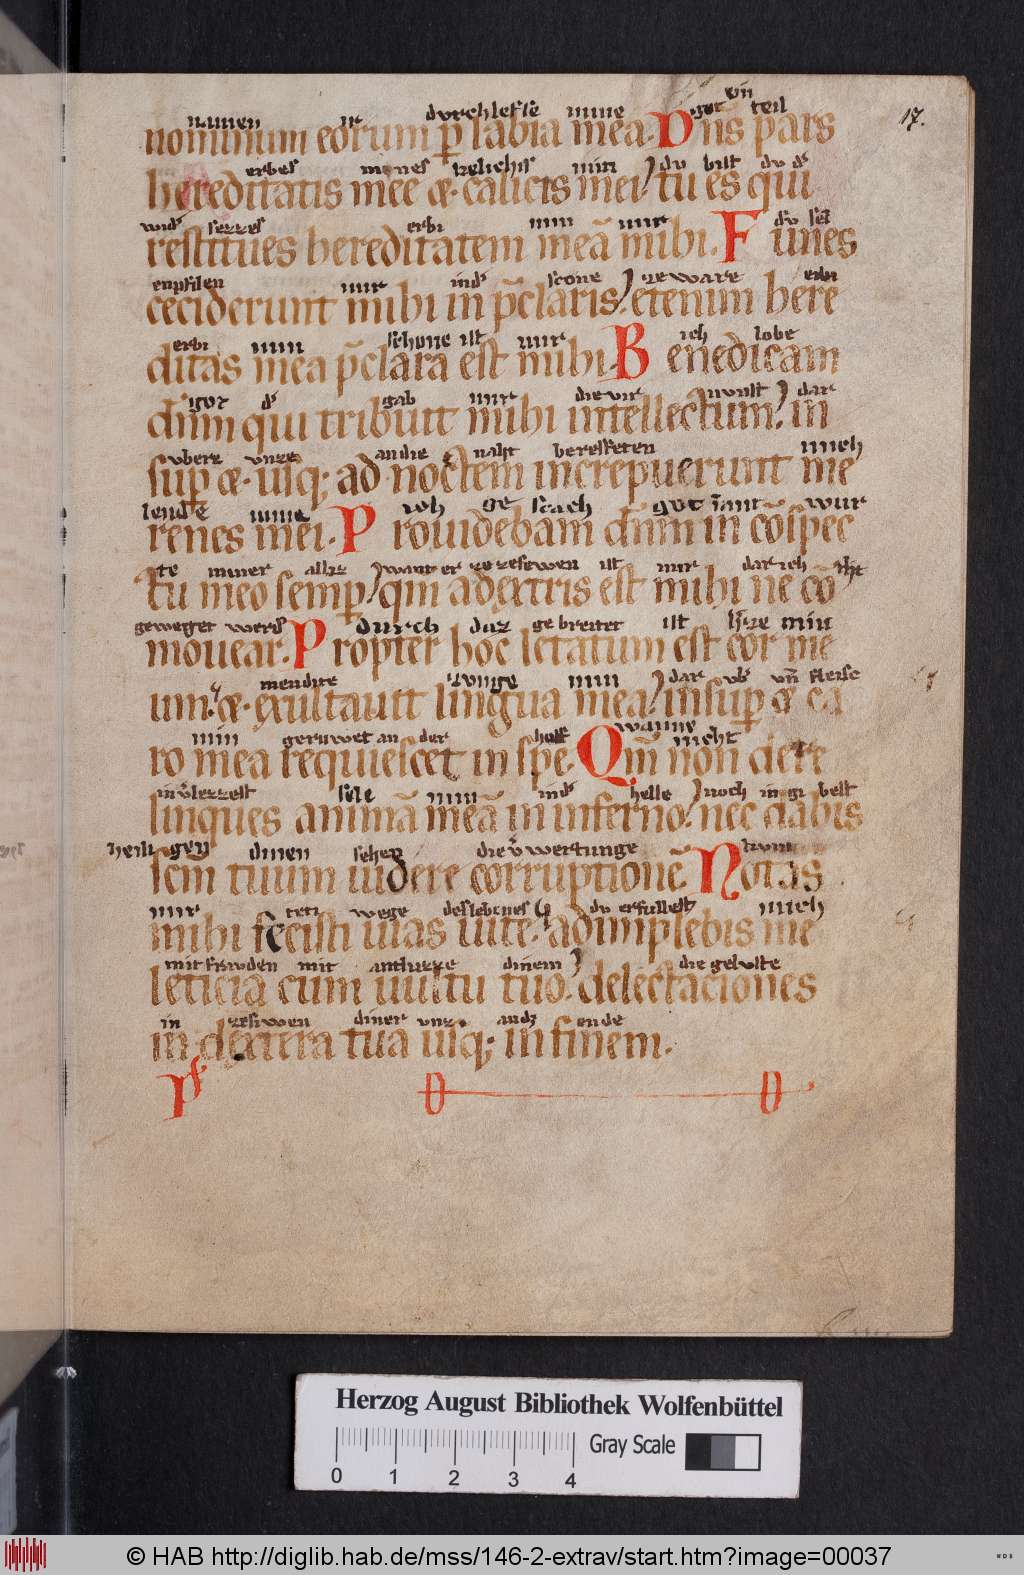 vn̄
namen ir durchlefse mine got teil
17.
nominum eorum p̱ labia mea. Dn̄s pars
erbes mynes kelichis min du bist du dˢ
hereditatis mee & calicis mei/ tu es qui
widˢ sezzes erbi min mir
restitues hereditatem meā mihi. Funes
enpfilen mir indˢ scone zeware erbi
ceciderunt mihi in p̄claris/ etenim here
erbi min schone ist mir ich lobe
ditas mea p̄clara est mihi. Benedicam
got dˢ gab mir die vir nunst dar
dn̄m qui tribuit mihi intellectum/ in
vbere vnze an die naht berefseten mich
sup̱ & usq; ad noctem increpuerunt me
lende mine
renes mei. Prouidebam dn̄m in cōspec
te miner allez want er ze zesewen ist mir dar ich
tu meo semp̱/ qm̄ adextris est mihi ne cō
geweget werdˢ durch daz gebreitet ist min
mouear. Propter hoc letatum est cor me
mendite zunge min dar vn̄ fleisc
um & exultauit lingua mea/ insup̱ & ca
min geruwet an der wanne nicht
ro mea requiescet in spe. Qm̄ non dere
sele min indˢ helle noch in gi best
linques animā meā in inferno/ nec dabis
heili gen dinen sehen die v̄wertunge
sc̄m tuum uidere corruptionē. Notas
mir wege des lebenes du erfullest mich
mihi fecisti uias uite. adimplebis me
mit frowden mit antluzze dinem die geluste
leticia cum uultu tuo. delectaciones
in zesiwen diner vnz andz ende
in dextera tua usq; in finem.
Herzog August Bibliothek Wolfenbüttel
Gray Scale
0 1 2 3 4
© HAB http://diglib.hab.de/mss/146-2-extrav/start.htm?image=00037